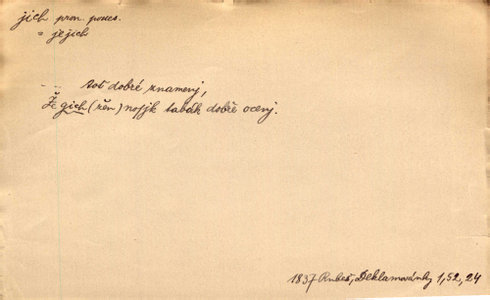 jich pron. poses.
= jejich
-- toť dobré znamenj,
Že gich (žen) nosjk tabák dobře ocenj.
1837 Rubeš, Deklamovánky 1, 52, 24